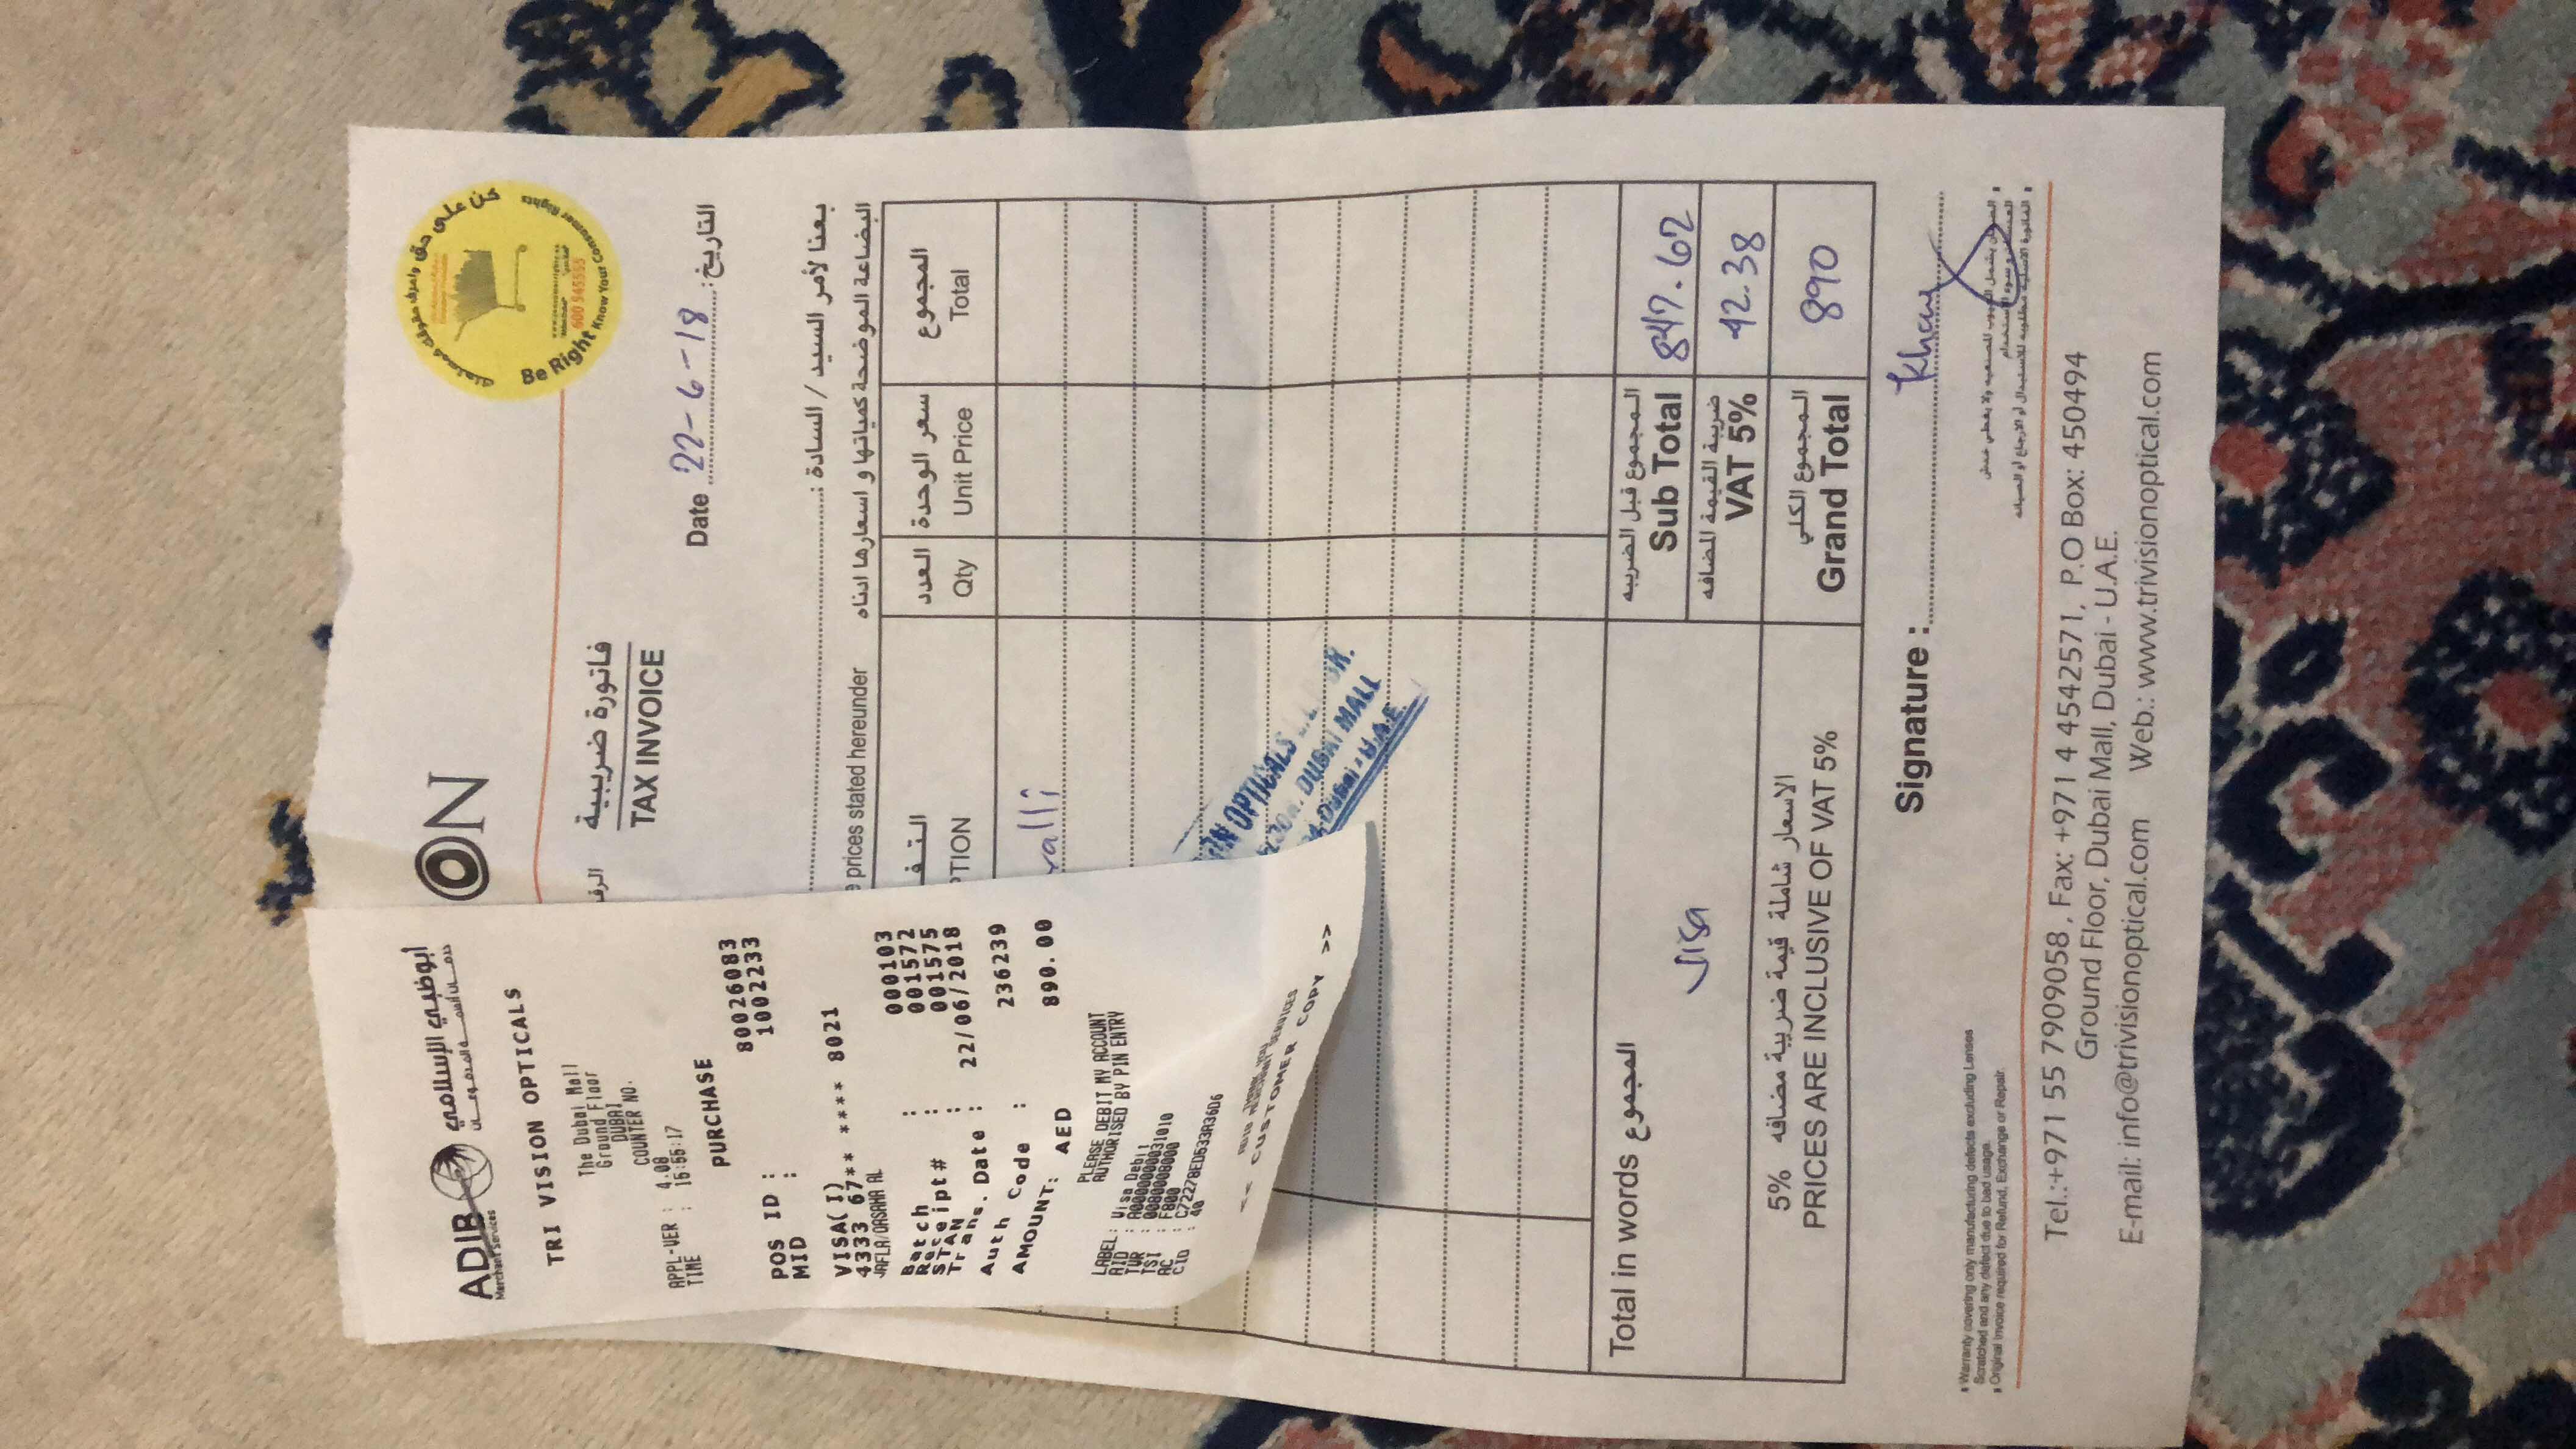 ADIB
Merchant Services
أبوظبي الإسلامي
TRI VISION OPTICALS
The Dubai Mall
Ground Floor
DUBAI
COUNTER NO.
APPL-VER : 4.08
TIME : 15:55:17
PURCHASE
80026083
POS ID : 1002233
MID :
VISA( I)
4333 67** **** 8021
JAFLA/OASAHA AL
Batch : 000103
Receipt# : 001572
STAN : 001575
Trans. Date : 22/06/2018
Auth Code : 236239
AMOUNT: AED 890.00
PLEASE DEBIT MY ACCOUNT
AUTHORISED BY PIN ENTRY
LABEL: Visa Debit
AID : A0000000031010
TVR : 0080008000
TSI : F800
AC : C72278ED533A36D6
CID : 40
THANK YOU
ADIB MERCHANT SERVICES
<< CUSTOMER COPY >>
ON
كن على حق واعرف حقوقك كمستهلك
600 545555
Be Right Know Your Consumer Rights
فاتورة ضريبية
TAX INVOICE
Date 22-6-18 التاريخ:
بعنا لأمر السيد / السادة :
prices stated hereunder البضاعة الموضحة كمياتها و اسعارها ادناه
العدد سعر الوحدة المجموع
PTION Qty Unit Price Total
valli
OPTICALS
DUBAI MALL
Dubai - U.A.E.
Total in words المجموع
Visa
المجموع قبل الضريبه
Sub Total 847.62
ضريبة القيمة المضافه
VAT 5% 42.38
الاسعار شاملة قيمة ضريبة مضافه 5%
PRICES ARE INCLUSIVE OF VAT 5%
المجموع الكلي
Grand Total 890
Signature :
Warranty covering only manufacturing defects excluding Lenses
Scratched and any defect due to bad usage.
Original Invoice required for Refund, Exchange or Repair.
الضمان يشمل العيوب المصنعيه ولا يغطي خدش
العدسات و سوء الاستخدام
الفاتورة الاصلية مطلوبه للاستبدال أو الارجاع أو الصيانه
Tel.:+971 55 7909058 , Fax: +971 4 4542571, P.O Box: 450494
Ground Floor, Dubai Mall, Dubai - U.A.E.
E-mail: info@trivisionoptical.com Web.: www.trivisionoptical.com